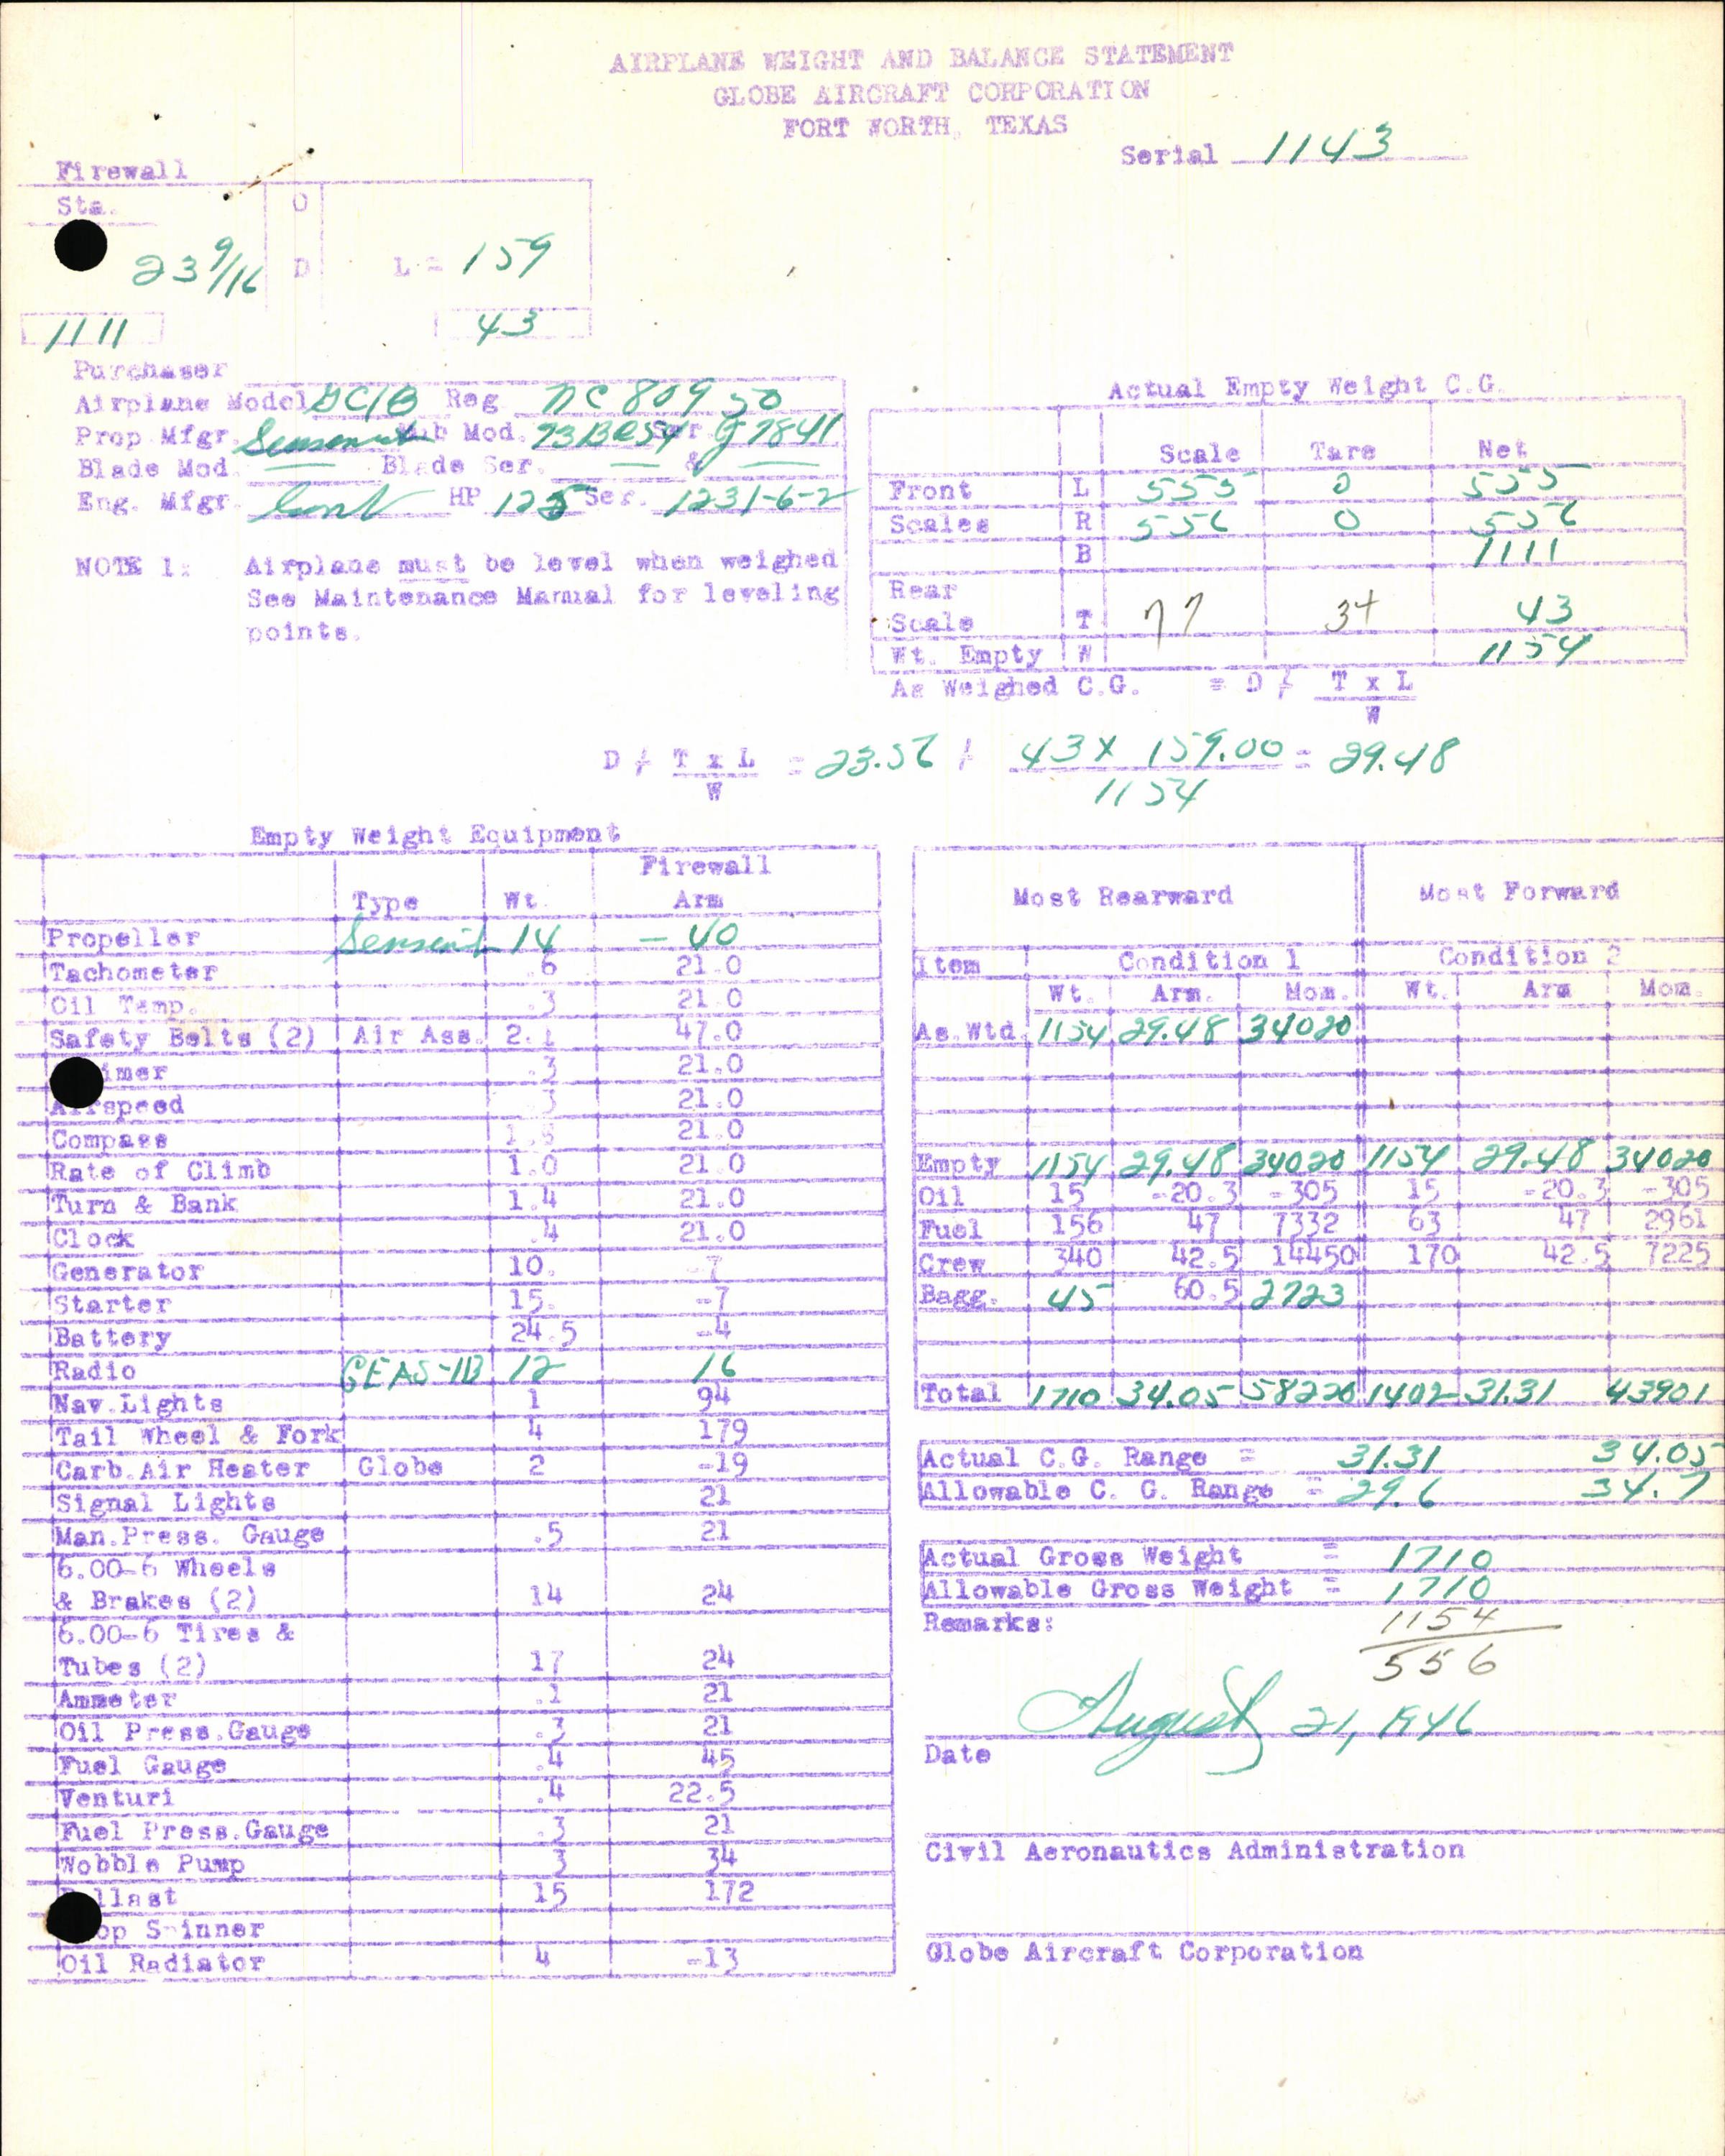 AIRPLANE WEIGHT AND BALANCE STATEMENT
GLOBE AIRCRAFT CORPORATION
FORT WORTH, TEXAS
Serial 1143
Firewall
Sta. O
23 9/16 D L = 159
1111 43
Purchaser
Airplane Model GC1B Reg NC 80950
Prop Mfgr. Sensenich Hub Mod. Ser.
Blade Mod. — Blade Ser. — & —
Eng. Mfgr. Cont HP 125 Ser. 1231-6-2
NOTE 1: Airplane must be level when weighed
See Maintenance Manual for leveling
points.
Actual Empty Weight C.G.
Scale Tare Net
Front L 555 0 555
Scales R 556 0 556
B 1111
Rear
Scale T 77 34 43
Wt. Empty W 1154
As Weighed C.G. = D + T x L
W
D + T x L = 23.56 + 43 X 159.00 = 29.48
W 1154
Empty Weight Equipment
Firewall
Type Wt. Arm
Propeller Sensenich 14 -40
Tachometer .6 21.0
Oil Temp. .3 21.0
Safety Belts (2) Air Ass. 2.1 47.0
imer .3 21.0
Airspeed .3 21.0
Compass 21.0
Rate of Climb 1.0 21.0
Turn & Bank 1.4 21.0
Clock .4 21.0
Generator 10. -7
Starter 15. -7
Battery 24.5 -4
Radio GEAS-1B 12 16
Nav.Lights 1 94
Tail Wheel & Fork 4 179
Carb.Air Heater Globe 2 -19
Signal Lights 21
Man.Press. Gauge .5 21
6.00-6 Wheels
& Brakes (2) 14 24
6.00-6 Tires &
Tubes (2) 17 24
Ammeter .1 21
Oil Press.Gauge .3 21
Fuel Gauge .4 45
Venturi .4 22.5
Fuel Press.Gauge .3 21
Wobble Pump 3 34
Ballast 15 172
op Spinner
Oil Radiator 4 -13
Most Rearward Most Forward
Item Condition 1 Condition 2
Wt. Arm. Mom. Wt. Arm Mom.
As.Wtd. 1154 29.48 34020
Empty 1154 29.48 34020 1154 29.48 34020
Oil 15 -20.3 -305 15 -20.3 -305
Fuel 156 47 7332 63 47 2961
Crew 340 42.5 14450 170 42.5 7225
Bagg. 45 60.5 2723
Total 1710 34.05 58220 1402 31.31 43901
Actual C.G. Range = 31.31 34.05
Allowable C. G. Range = 29.6 34.7
Actual Gross Weight = 1710
Allowable Gross Weight = 1710
Remarks: 1154
556
August 21, 1946
Date
Civil Aeronautics Administration
Globe Aircraft Corporation